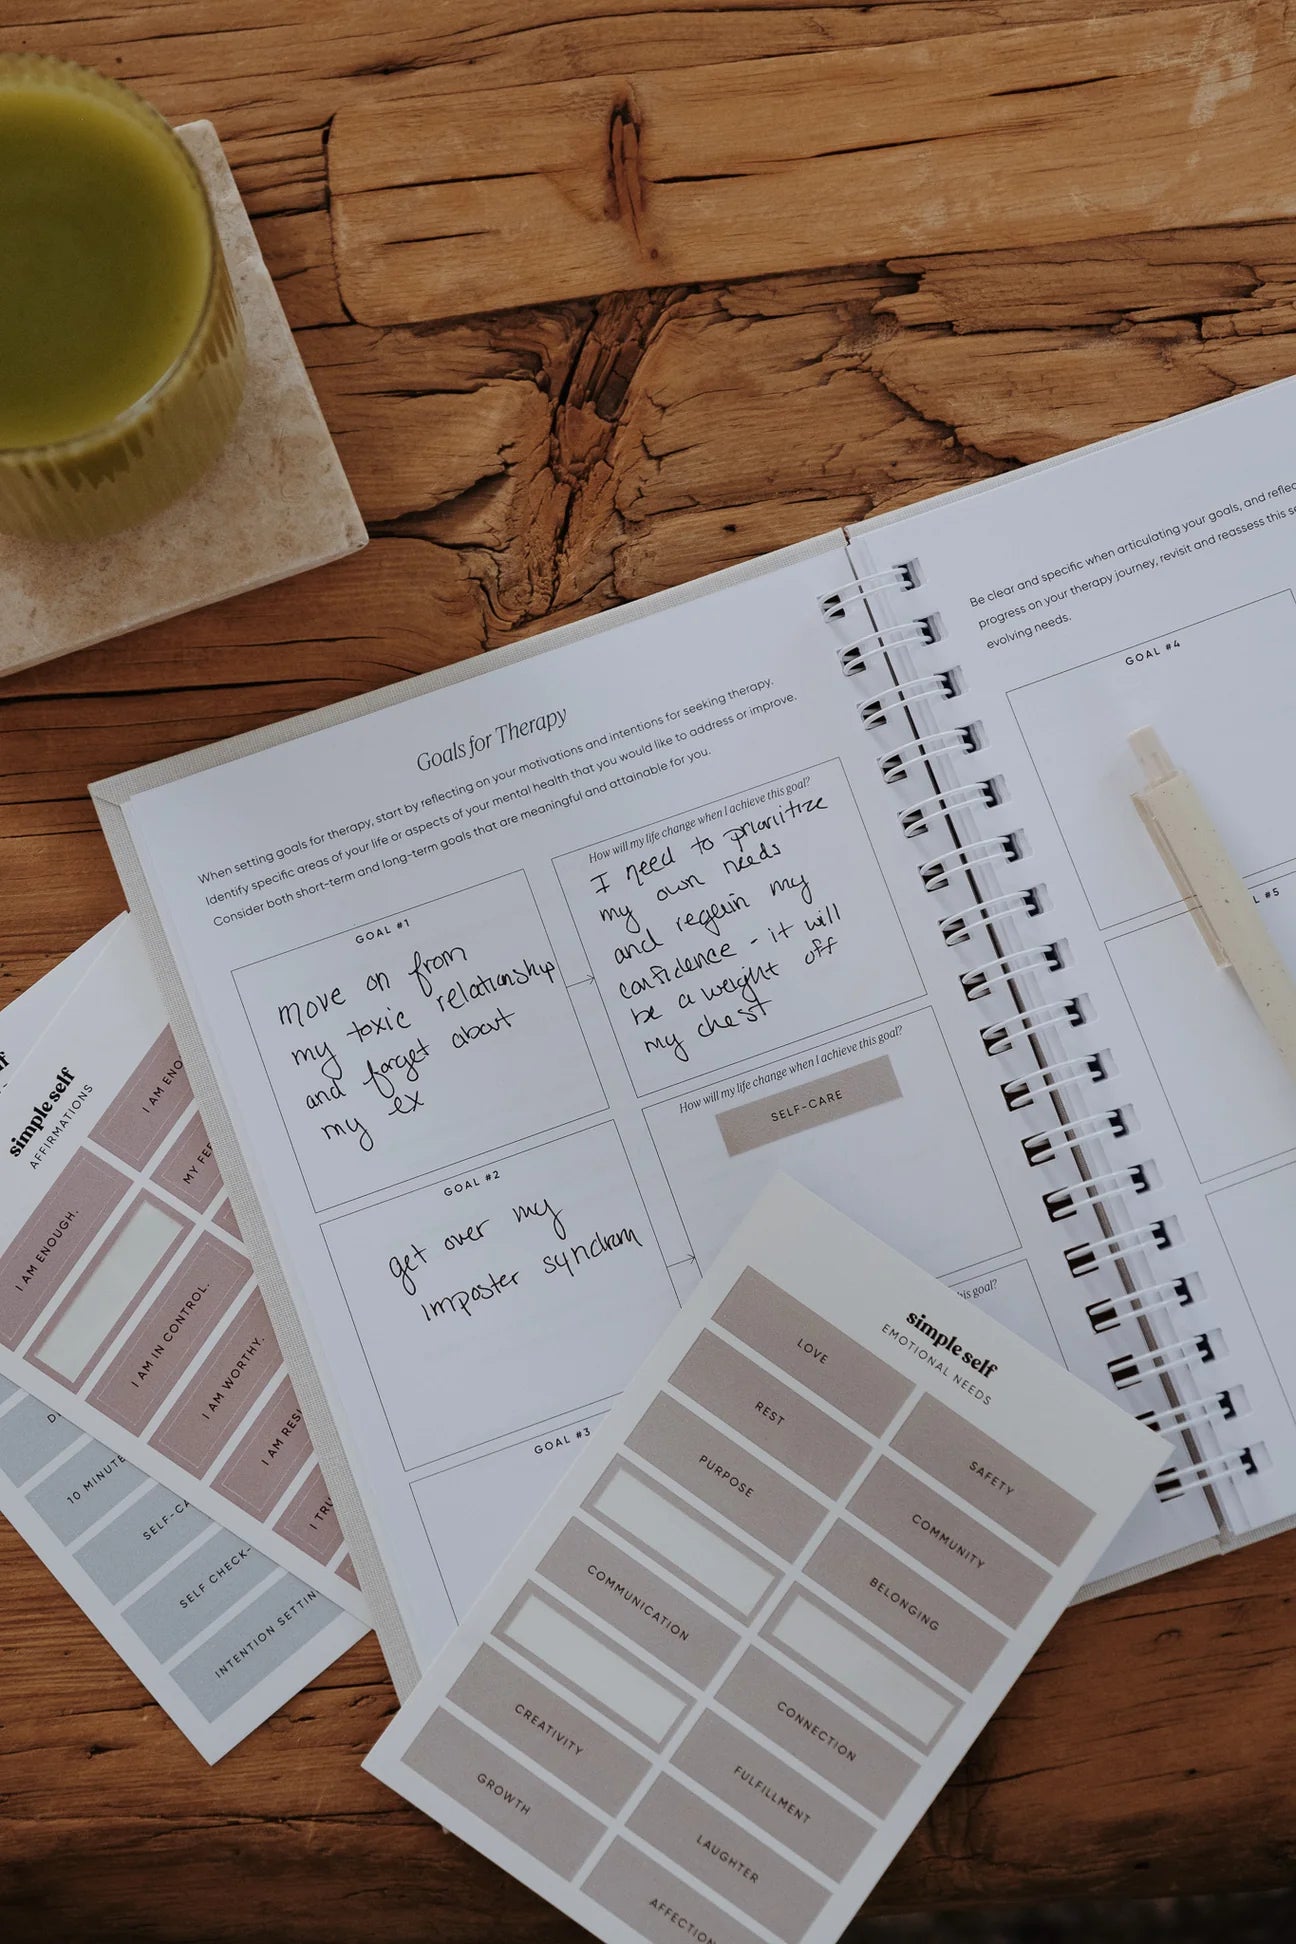 Goals for Therapy
When setting goals for therapy, start by reflecting on your motivations and intentions for seeking therapy.
Identify specific areas of your life or aspects of your mental health that you would like to address or improve.
Consider both short-term and long-term goals that are meaningful and attainable for you.
GOAL #1
move on from
my toxic relationship
and forget about
my ex
How will my life change when I achieve this goal?
I need to prioritize
my own needs
and regain my
confidence - it will
be a weight off
my chest
GOAL #2
get over my
imposter syndrom
How will my life change when I achieve this goal?
SELF-CARE
GOAL #3
this goal?
Be clear and specific when articulating your goals, and
progress on your therapy journey, revisit and reassess this
evolving needs.
GOAL #4
#5
simple self
AFFIRMATIONS
I AM
MY
I AM ENOUGH.
I AM IN CONTROL.
I AM WORTHY.
I AM
I
10 MINUTE
SELF-
SELF CHECK-
INTENTION
simple self
EMOTIONAL NEEDS
LOVE
REST
PURPOSE
COMMUNICATION
CREATIVITY
GROWTH
SAFETY
COMMUNITY
BELONGING
CONNECTION
FULFILLMENT
LAUGHTER
AFFECTION